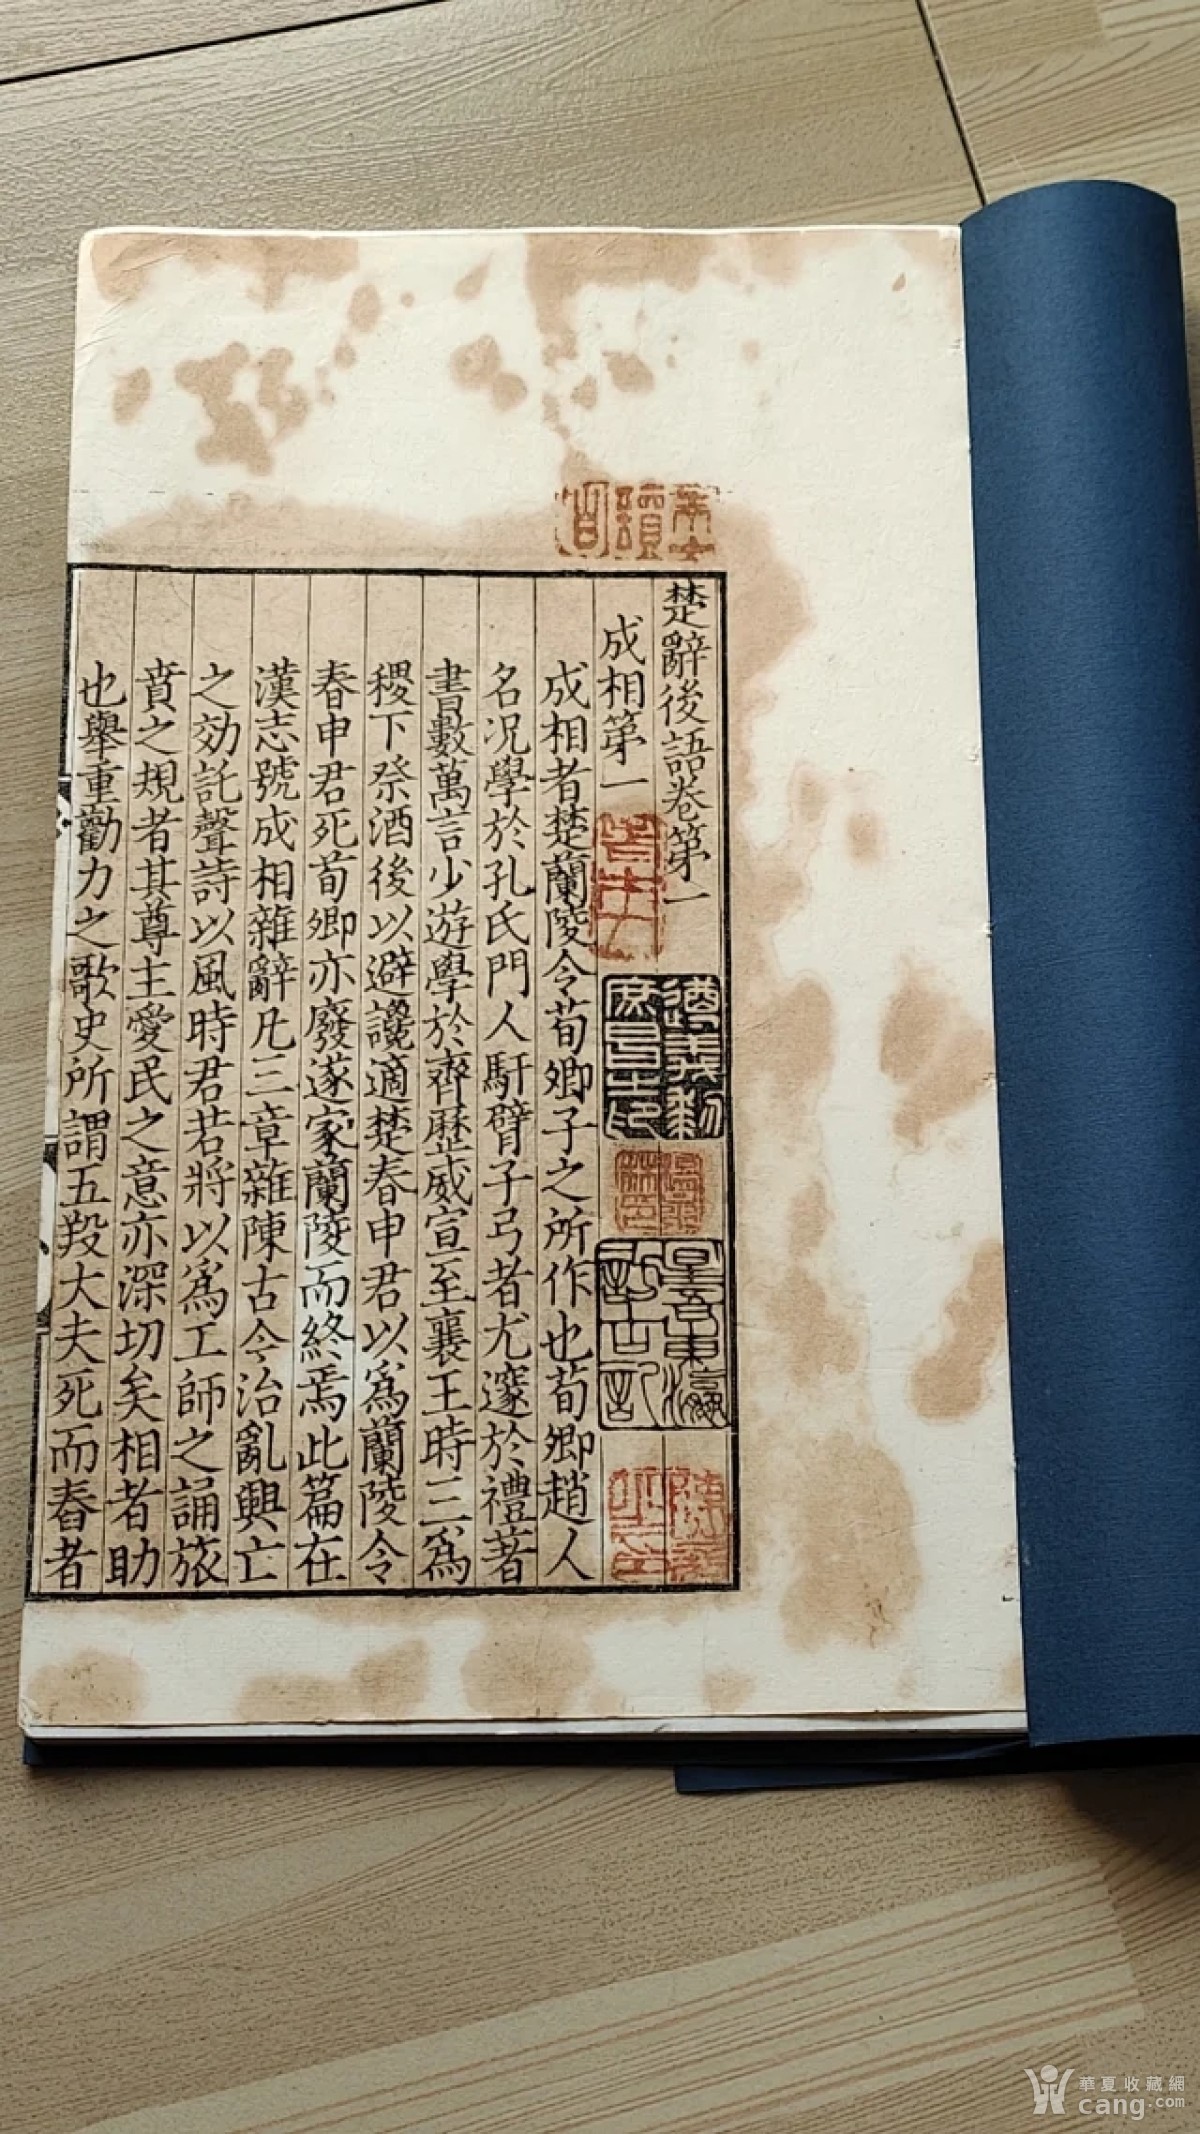 楚辭後語卷第一
成相第一
成相者楚蘭陵令荀卿子之所作也荀卿趙人
名況學於孔氏門人馯臂子弓者尤邃於禮著
書數萬言少遊學於齊歷威宣至襄王時三為
稷下祭酒後以避讒適楚春申君以為蘭陵令
春申君死荀卿亦廢遂家蘭陵而終焉此篇在
漢志號成相雜辭凡三章雜陳古今治亂興亡
之効託聲詩以風時君若將以為工師之誦旅
賁之規者其尊主愛民之意亦深切矣相者助
也舉重勸力之歌史所謂五羖大夫死而舂者
遵義黎
庶昌之印
星吾東瀛
訪古記
華夏收藏網
cang.com